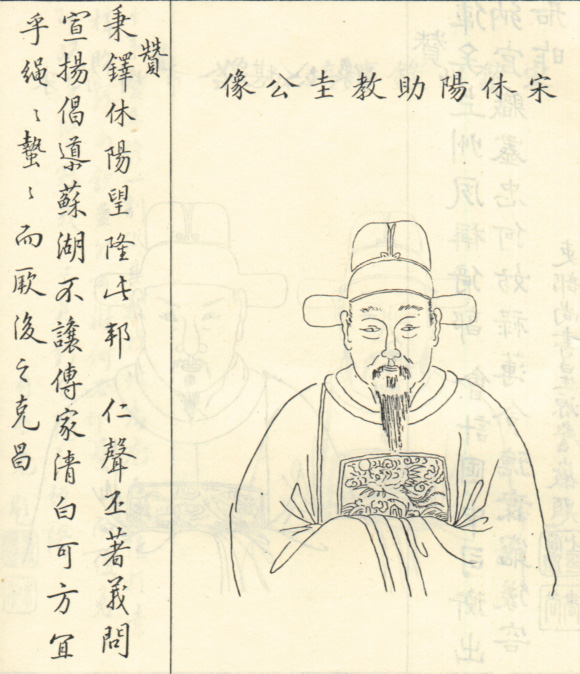 宋休陽助教圭公像
贊
秉鐸休陽望隆此邦 仁聲丕著義問
宣揚倡導蘇湖不讓傳家清白可方宜
乎繩〻蟄〻而厥後之克昌